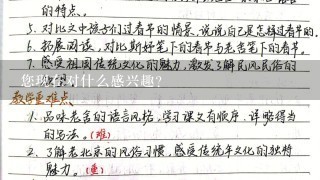 的特点。
5. 对比文中孩子们过春节的情景,说说自己是怎样过春节的。
6. 拓展阅读,对比斯妤笔下的春节与老舍笔下的春节。
7. 感受祖国传统文化的魅力,激发了解民风民俗的
您现在对什么感兴趣?
教学重难点
1. 品味老舍的语言风格,学习课文有顺序、详略得当
的写法。(难)
2. 了解老北京的风俗习惯,感受传统年文化的独特
魅力。(重)